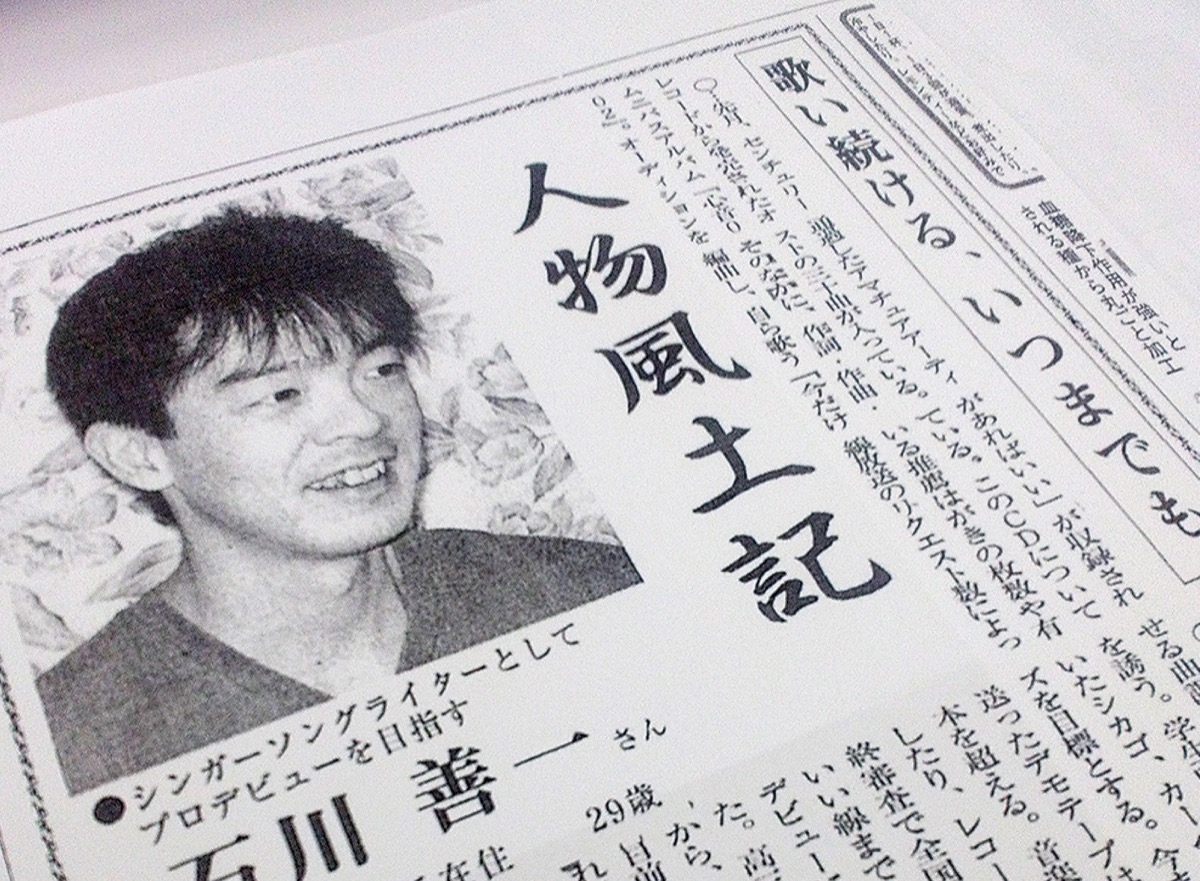 血糖降下作用が強いと
される種から丸ごと加工
歌い続ける、いつまでも
レコードから発売されたオ
ムニバスアルバム
02」。オーディションを
通過したアマチュアアーティ
ストの三十曲が入っている。
そのなかに、作詞・作曲・
編曲し、自ら歌う「今だけ
があればいい」が収録され
ている。このCDについて
いる推薦はがきの枚数や有
線放送のリクエスト数によっ
人物風土記
●シンガーソングライターとして
プロデビューを目指す
石川 善一 さん
在住
29歳
せる曲
を誘う。学生
いたシカゴ、カー
ズを目標とする。今
送ったデモテープは
本を超える。音楽
したり、レコー
終審査で全国
いい線まで
デビュー
た。高
、から、
目前
れ